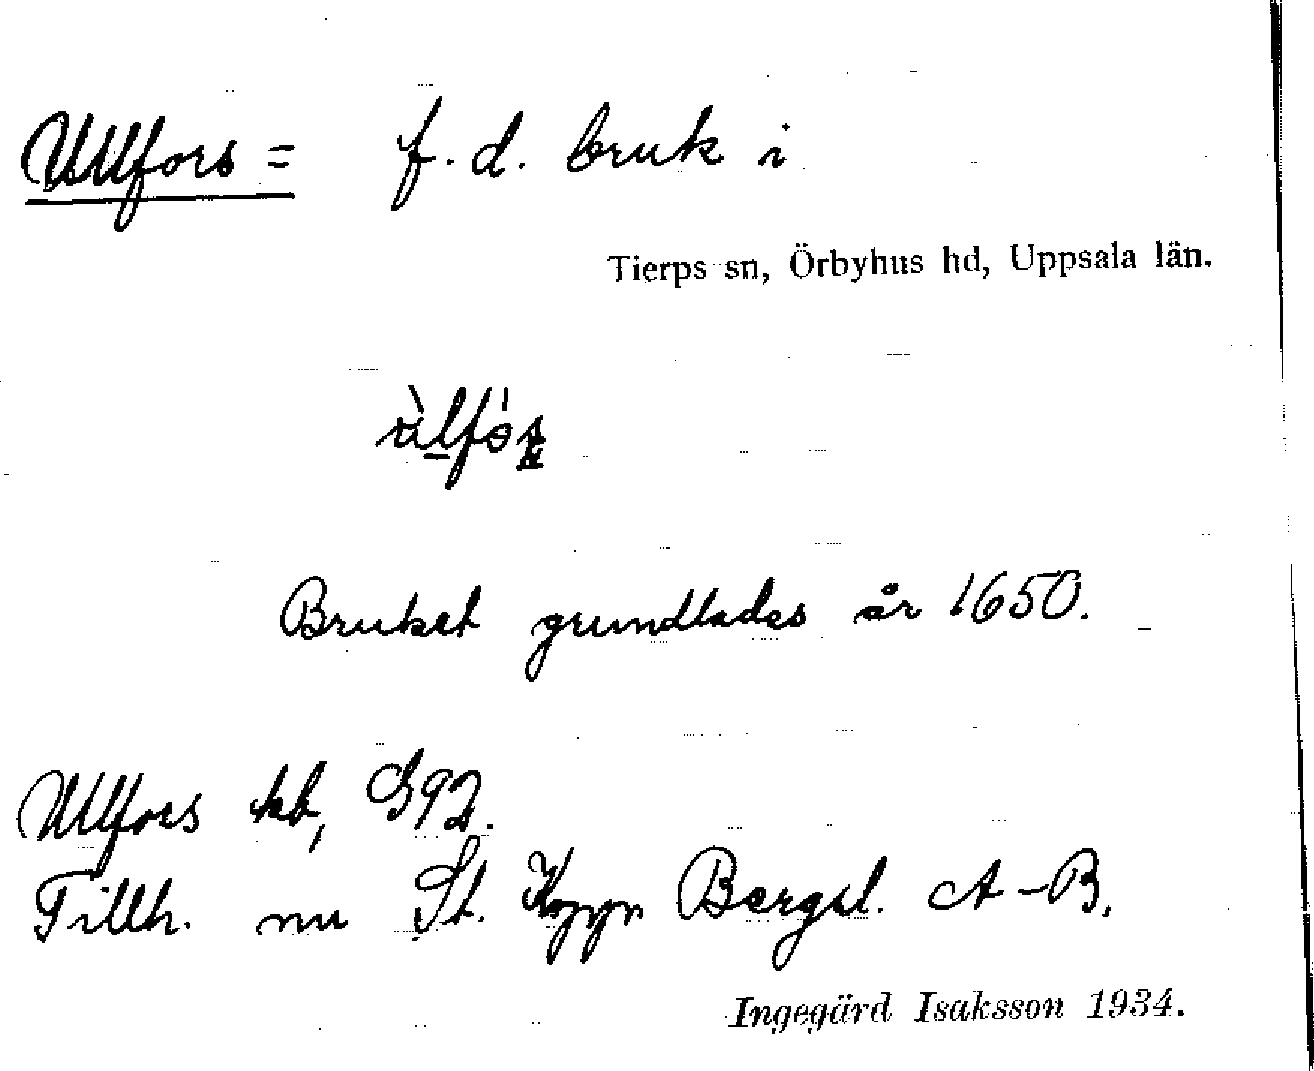 Ullfors = f. d. bruk i
Tierps sn, Örbyhus hd, Uppsala län.
Bruket grundlades år 1650.
Ullfors kb, S92.
Tillh. nu St. Kopp Bergsl. A-B.
Ingegärd Isaksson 1934.